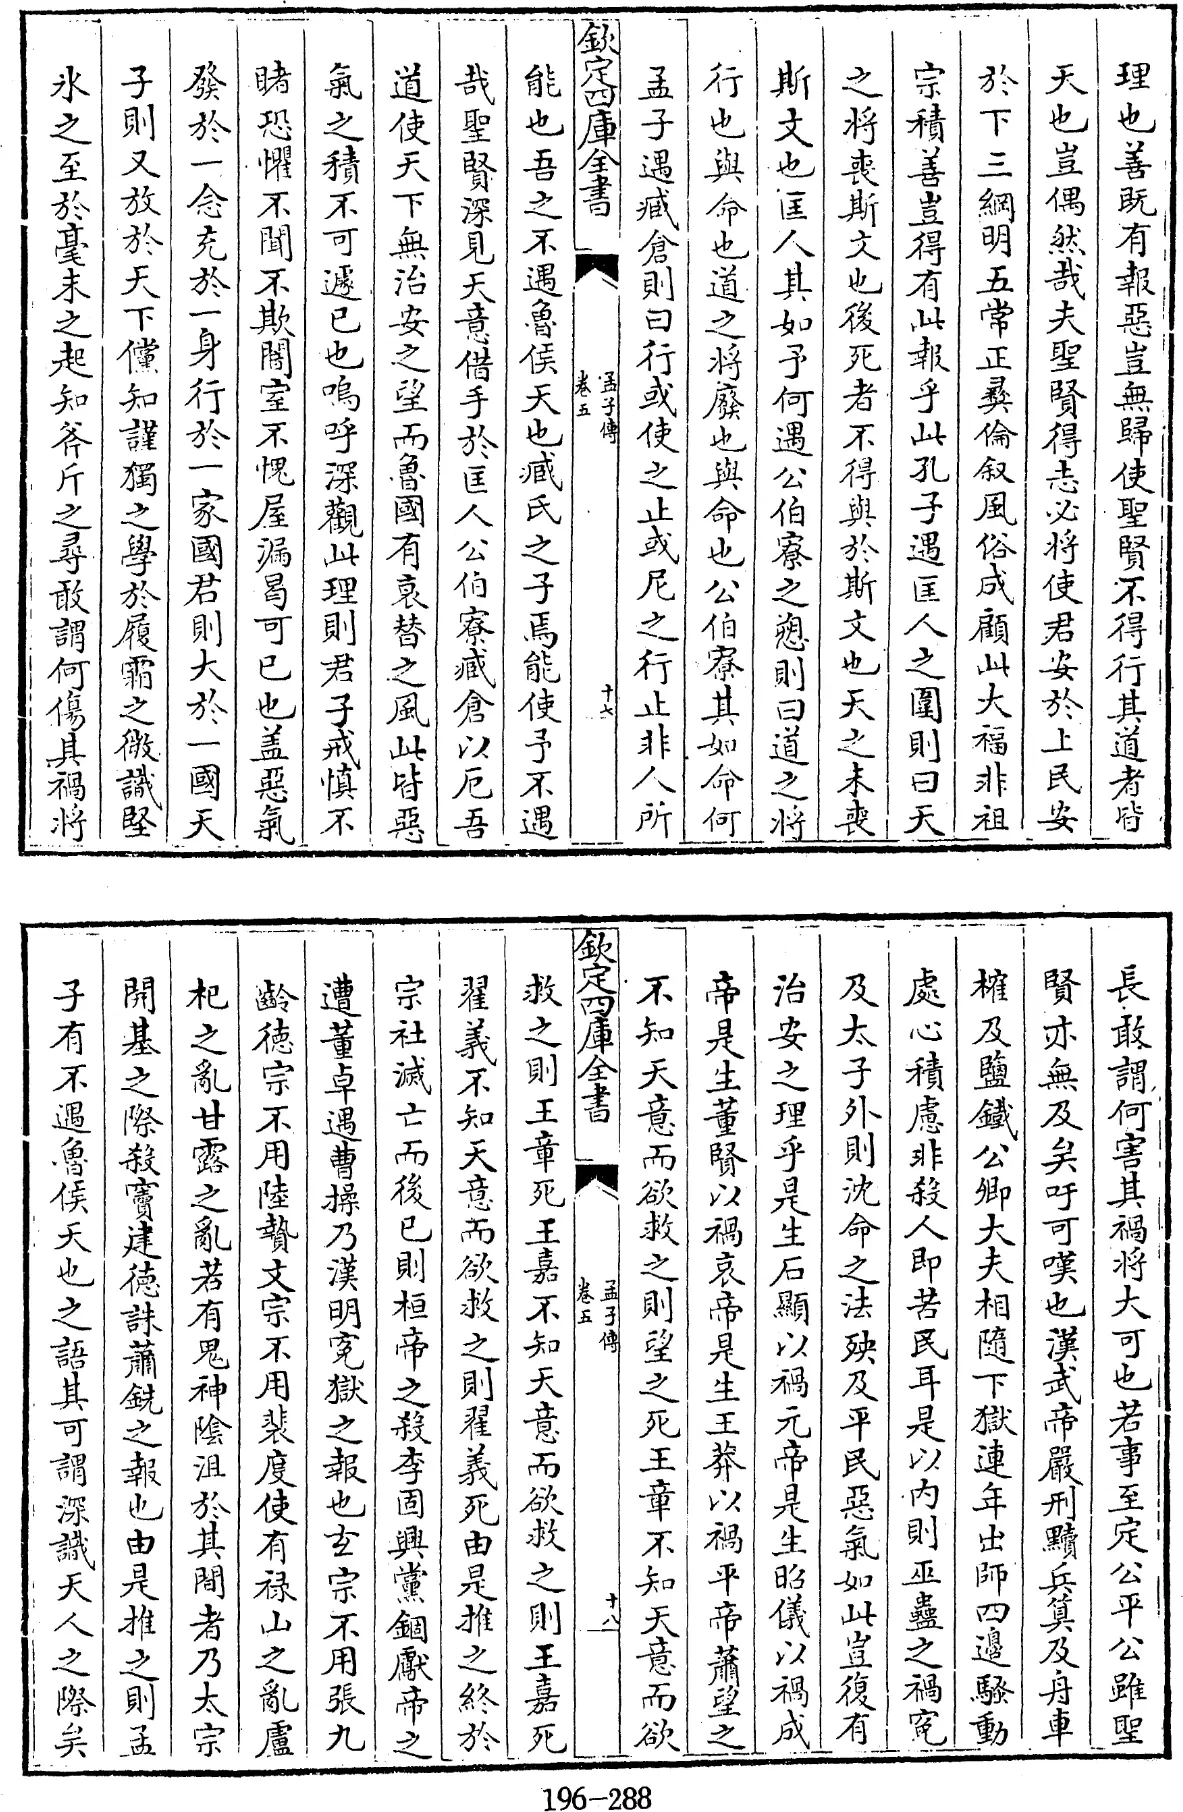 理也善既有報惡豈無歸使聖賢不得行其道者皆
天也豈偶然哉夫聖賢得志必將使君安於上民安
於下三綱明五常正彝倫叙風俗成顧此大福非祖
宗積善豈得有此報乎此孔子遇匡人之圍則曰天
之將喪斯文也後死者不得與於斯文也天之未喪
斯文也匡人其如予何遇公伯寮之愬則曰道之將
行也與命也道之將廢也與命也公伯寮其如命何
孟子遇臧倉則曰行或使之止或尼之行止非人所
欽定四庫全書
孟子傳
卷五
十七
能也吾之不遇魯侯天也臧氏之子焉能使予不遇
哉聖賢深見天意借手於匡人公伯寮臧倉以厄吾
道使天下無治安之望而魯國有衰替之風此皆惡
氣之積不可遽已也嗚呼深觀此理則君子戒慎不
睹恐懼不聞不欺闇室不愧屋漏曷可已也盖惡氣
發於一念充於一身行於一家國君則大於一國天
子則又放於天下儻知謹獨之學於履霜之微識堅
氷之至於毫末之起知斧斤之尋敢謂何傷其禍將
長敢謂何害其禍將大可也若事至定公平公雖聖
賢亦無及矣吁可嘆也漢武帝嚴刑黷兵筭及舟車
榷及鹽鐵公卿大夫相隨下獄連年出師四邉騷動
處心積慮非殺人即苦民耳是以内則巫蠱之禍寃
及太子外則沈命之法殃及平民惡氣如此豈復有
治安之理乎是生石顯以禍元帝是生昭儀以禍成
帝是生董賢以禍哀帝是生王莽以禍平帝蕭望之
不知天意而欲救之則望之死王章不知天意而欲
欽定四庫全書
孟子傳
卷五
十八
救之則王章死王嘉不知天意而欲救之則王嘉死
翟義不知天意而欲救之則翟義死由是推之終於
宗社滅亡而後已則桓帝之殺李固興黨錮獻帝之
遭董卓遇曹操乃漢明寃獄之報也𤣥宗不用張九
齡德宗不用陸贄文宗不用裴度使有禄山之亂盧
杞之亂甘露之亂若有鬼神陰沮於其間者乃太宗
開基之際殺竇建德誅蕭銑之報也由是推之則孟
子有不遇魯侯天也之語其可謂深識天人之際矣
196-288